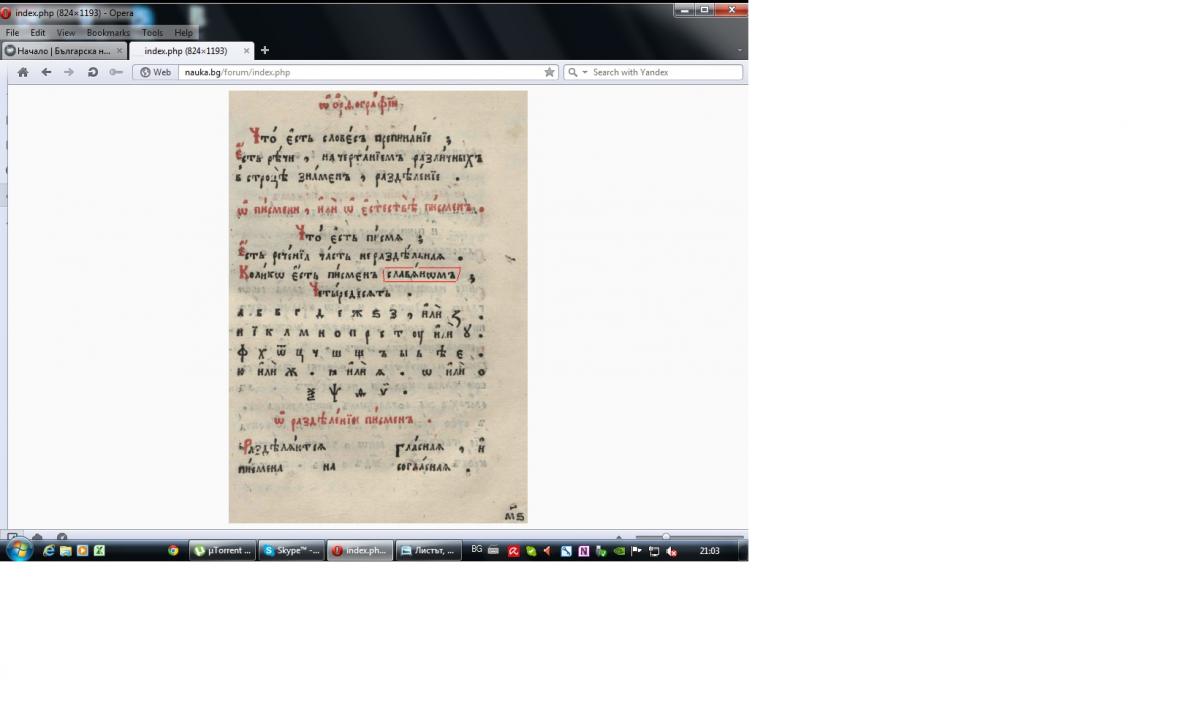 index.php (824×1193) - Opera
File Edit View Bookmarks Tools Help
Начало | Българска н... index.php (824×1193)
Web nauka.bg/forum/index.php Search with Yandex
Ѿ Ѻ҆рѳогра́фїи
Что̀ є҆́сть слове́съ препина́нїе ;
Є҆́сть рѣ́чи , начерта́нїемъ разли́чныхъ
в строцѣ̀ зна́менъ , раздѣле́нїе .
ѿ пи́смени , и҆лѝ ѿ є҆стествѣ̀ пи́сменъ .
Что̀ є҆́сть пи́смѧ ;
Є҆́сть рече́нїѧ ча́сть нераздѣ́льнаѧ .
Коли́кѡ є҆́сть пи́сменъ славѧ́нѡмъ ;
Четы́редесѧть .
а в б г д е ж ѕ з , и҆лѝ ꙁ .
и ї к л м н о п р с т ѹ и҆лѝ ꙋ .
ф х ѿ ц ч ш щ ъ ы ь ѣ є .
ю и҆лѝ ѫ . ꙗ и҆лѝ ѧ . ѡ и҆лѝ о
ѯ ѱ ѳ ѵ .
Ѿ раздѣле́нїи пи́сменъ .
Раздѣлѧ́ютсѧ гла́снаѧ , и҆
пи́смена на согла́снаѧ .
м҃ѕ
µTorrent ... Skype™ -... index.ph... Листът, ... BG 21:03